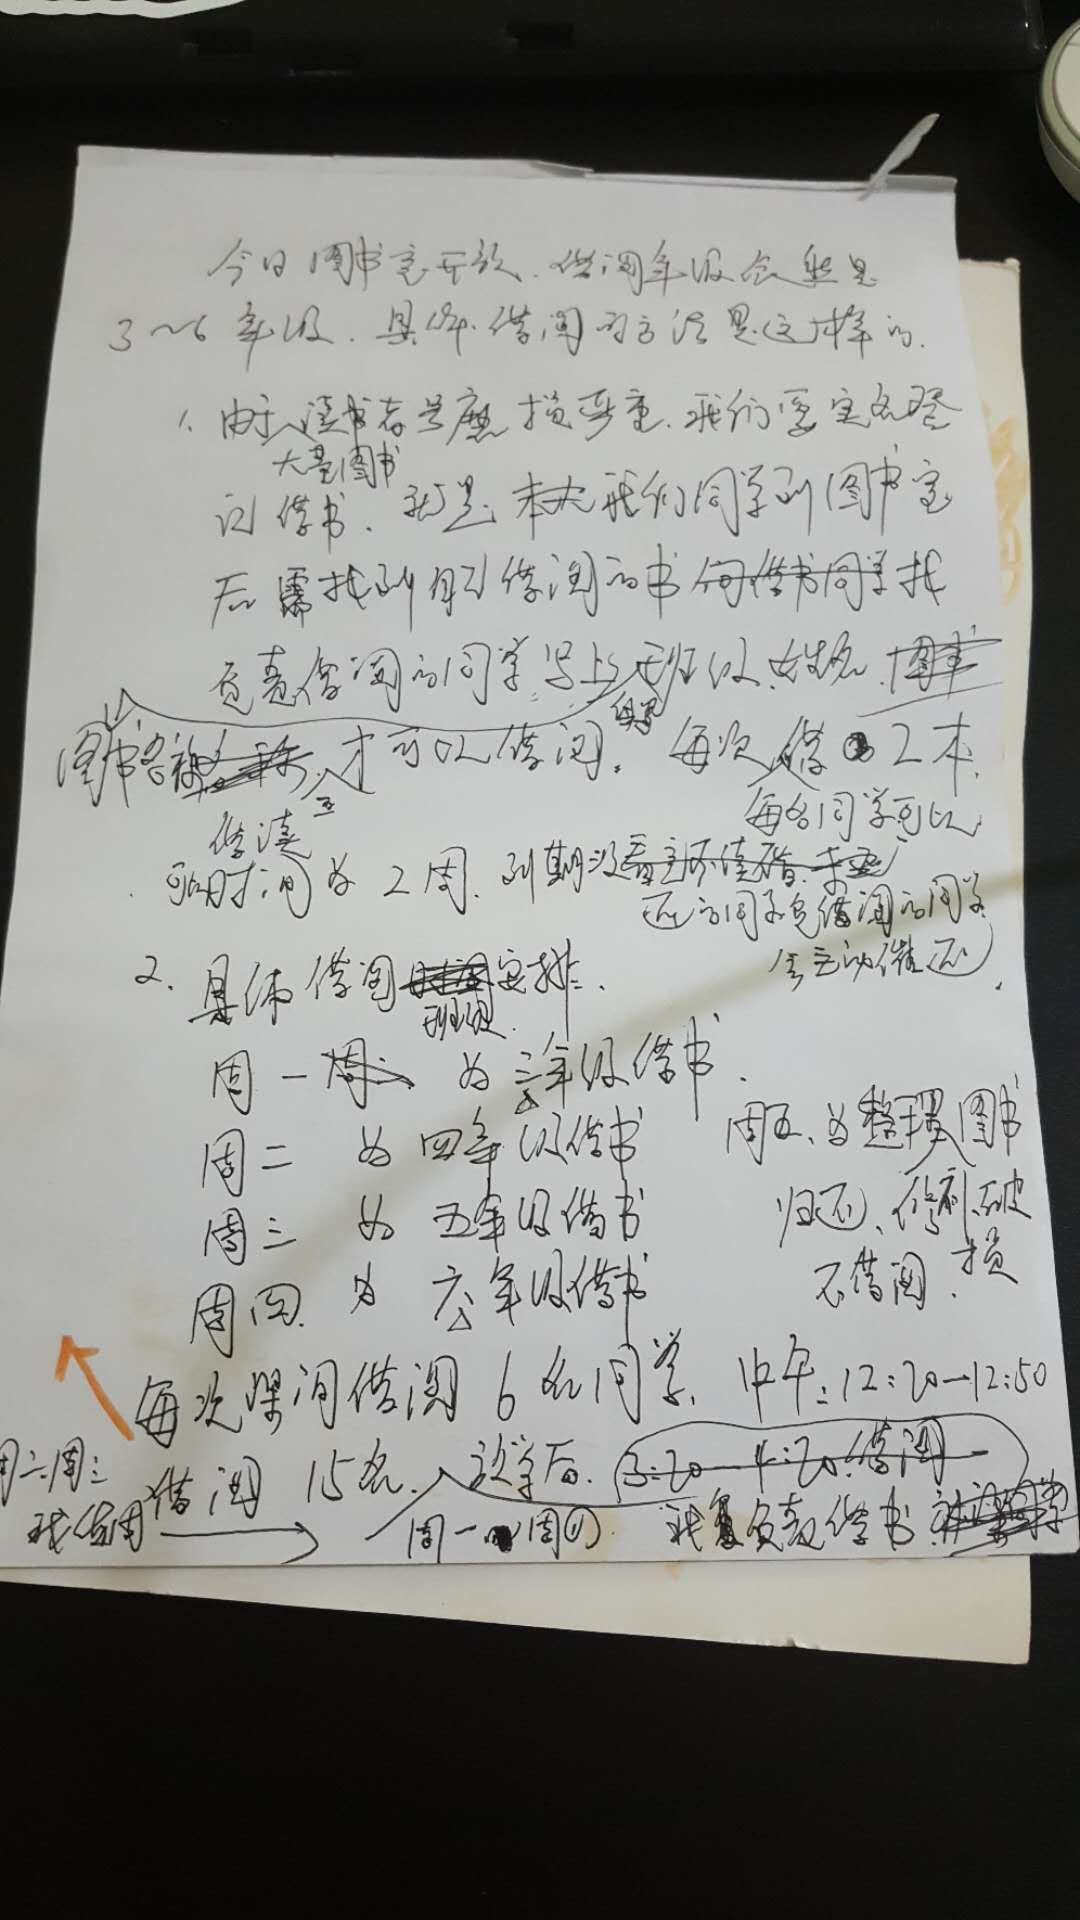 今日图书室开放.借阅年级仍然是
3~6年级.具体借阅的方法是这样的.
1.由于读书存量磨损严重.我们要实名登
大量图书
记借书.就是本次我们同学到图书室
后需找到自己借阅的书向借书同学找
负责借阅的同学写上班级.姓名.图书
图书名称才可以借阅。每次借2本.
每名同学可以
借读
时间为2周.到期没
还的同学负责借阅的同学
会主动催还.
2.具体借阅安排.
班级
周一为三年级借书.
周二为四年级借书
周三为五年级借书
周四为六年级借书
周五.为整理图书
归还、修补破
损
不借阅.
每次课间借阅6名同学.中午:12:20—12:50
借阅15名.放学后.3:20—4:20.借阅
周二.周三
我值周
周一周四.我负责借书